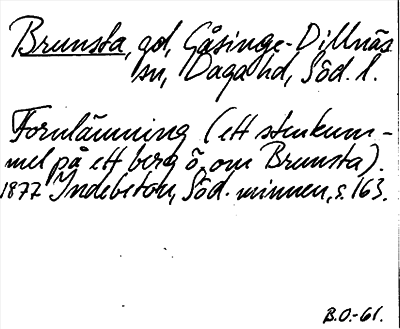 Brunsta, gd, Gåsinge-Dillnäs
sn, Daga hd, Söd. l.
Fornlämning (ett stenkum-
mel på ett berg ö. om Brunsta).
1877 Indebetou, Söd. minnen, s. 163.
B.O.-61.